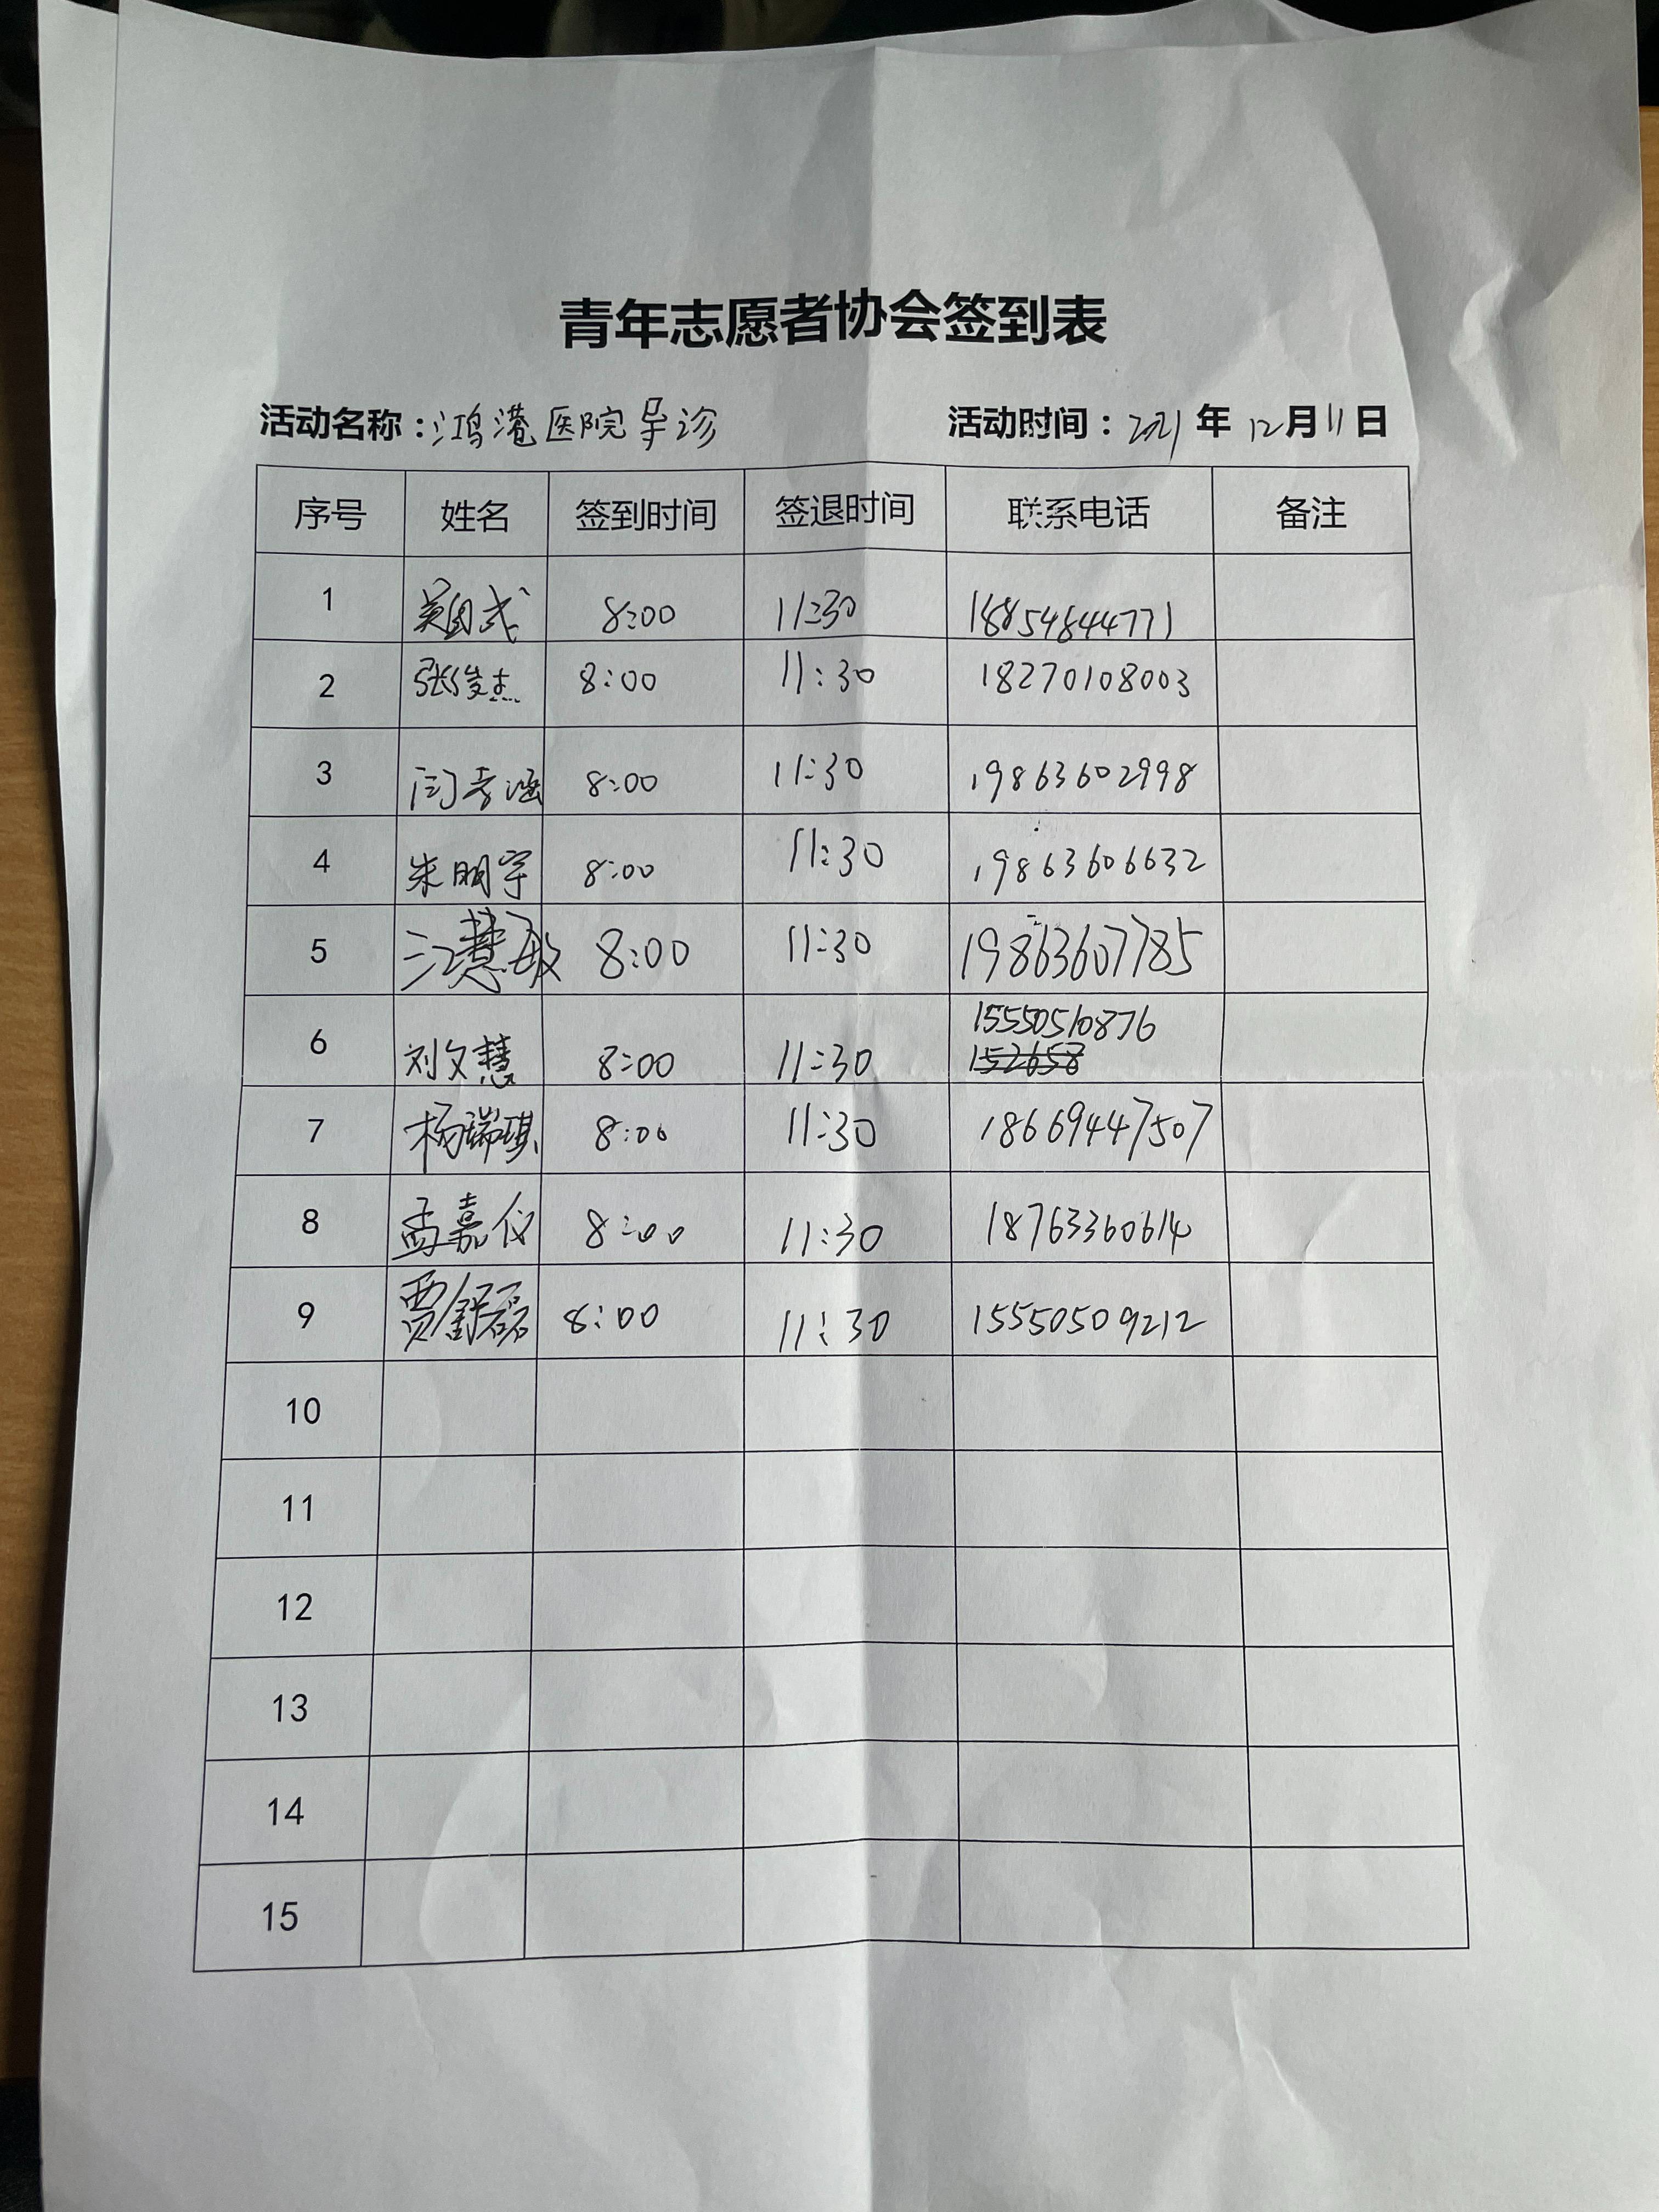 青年志愿者协会签到表
活动名称：鸿港医院导诊 活动时间：2021年12月11日
序号 姓名 签到时间 签退时间 联系电话 备注
1 8:00 11:30 18854844771
2 张俊杰 8:00 11:30 18270108003
3 8:00 11:30 19863602998
4 朱明宇 8:00 11:30 19863606632
5 江慧敏 8:00 11:30 19863607785
15550510876
6 刘文慧 8:00 11:30 152658
7 杨瑞琪 8:00 11:30 18669447507
8 孟嘉仪 8:00 11:30 18763360614
9 贾舒磊 8:00 11:30 15550509212
10
11
12
13
14
15